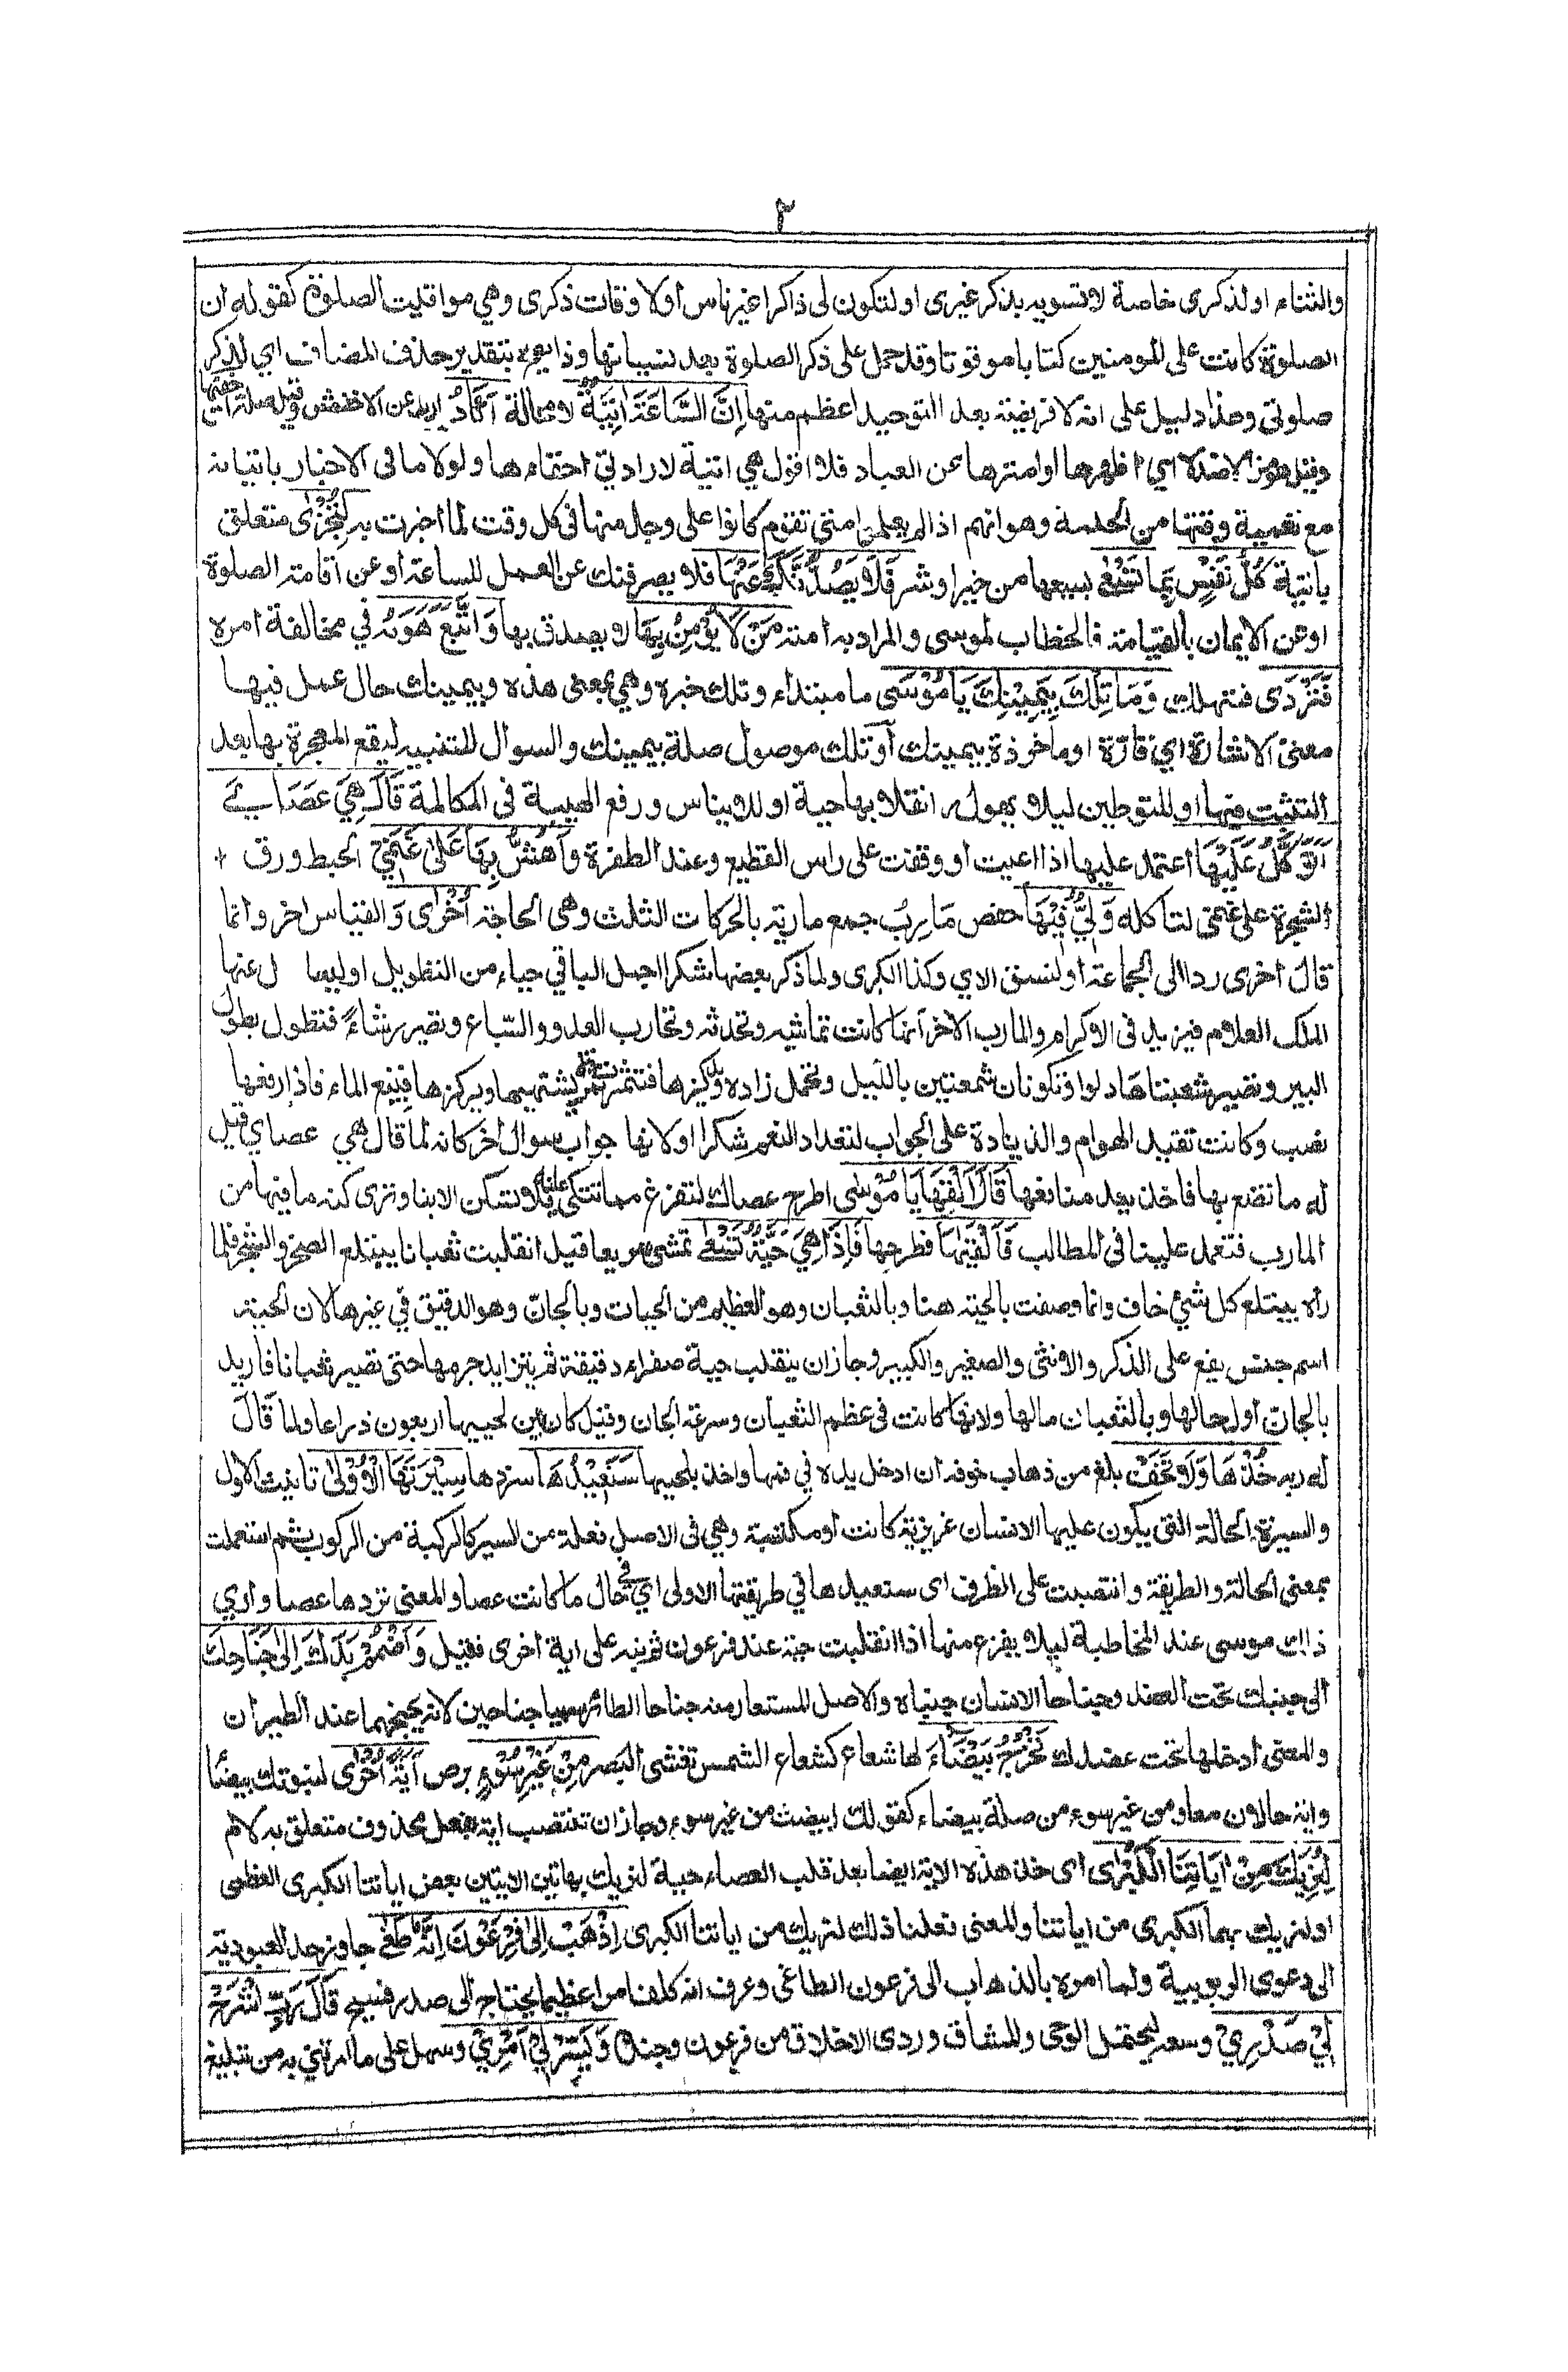 ٢
والثناء او لذكرى خاصة لا تسوبه بذكر غيرى او لتكون لى ذاكرا غير ناس او لاوقات ذكرى وهي مواقيت الصلوة كقوله ان
الصلوة كانت على المومنين كتابا موقوتا وقد حمل على ذكر الصلوة بعد نسيانها وذا يصح بتقدير حذف المضاف اى لذكر
صلوتى وهذا دليل على انه لا فريضة بعد التوحيد اعظم منها اِنَّ السَّاعَةَ اٰتِيَةٌ لا محالة اَكَادُ اريد عن الاخفش وقيل صلة اُخْفِيْهَا
وقيل هو من الاضداد اى اظهرها او استرها عن العباد فلا اقول هي اتية لارادتى اخفاءها ولولا ما فى الاخبار باتيانه
مع تعمية وقتها من الحكمة وهو انهم اذا لم يعلموا متى تقوم كانوا على وجل منها فى كل وقت لما اخبرت به لِتُجْزٰى متعلق
باتية كُلُّ نَفْسٍ بِمَا تَسْعٰى بسعيها من خير او شر فَلَا يَصُدَّنَّكَ عَنْهَا فلا يصرفنك عن العمل للساعة او عن اقامة الصلوة
او عن الايمان بالقيامة فالخطاب لموسى والمراد به امته مَنْ لَّا يُؤْمِنُ بِهَا لا يصدق بها وَاتَّبَعَ هَوٰىهُ في مخالفة امره
فَتَرْدٰى فتهلك وَمَا تِلْكَ بِيَمِيْنِكَ يَا مُوْسٰى ما مبتداء وتلك خبره وهي بمعنى هذه وبيمينك حال عمل فيها
معنى الاشارة اي قارّة او ماخوذة بيمينك او تلك موصول صلة بيمينك والسوال للتنبيه ليقع المعجزة بها بعد
التثبت فيها او للتوطين ليلا يهوله انقلابها حية او للايناس ورفع الهيبة فى المكالمة قَالَ هِيَ عَصَايَ
اَتَوَكَّؤُ عَلَيْهَا اعتمد عليها اذا اعييت او وقفت على راس القطيع وعند الطفرة وَاَهُشُّ بِهَا عَلٰى غَنَمِيْ اخبط ورق
الشجرة على غنمى لتاكله وَلِيَ فِيْهَا حفص مَاٰرِبُ جمع ماربة بالحركات الثلث وهى الحاجة اُخْرٰى والقياس اخر وانما
قال اخرى ردا الى الجماعة او لنسق الاي وكذا الكبرى ولما ذكر بعضها شكرا اجمل الباقي حياء من التطويل او ليسا ل عنها
الملك العلام فيزيد فى الاكرام والمارب الاخر انها كانت تماشيه وتحدثه وتحارب العدو والسباع وتصير رشاءً فتطول بطول
البير وتصير شعبتاها دلوا وتكونان شمعتين بالليل وتحمل زاده ويركزها فتثمر ثمرة يشتهيها ويركزها فينبع الماء فاذا رفعها
نضب وكانت تقيه الهوام والزيادة على الجواب لتعداد النعم شكرا او لانها جواب سوال اخر كانه لما قال هي عصاي قيل
له ما تصنع بها فاخذ يعد منافعها قَالَ اَلْقِهَا يَا مُوْسٰى اطرح عصاك لتفزع مما تتكى عليه فلا تسكن الا بنا وترى كنه ما فيها من
المارب فتعتمد علينا فى المطالب فَاَلْقٰىهَا فطرحها فَاِذَا هِيَ حَيَّةٌ تَسْعٰى تمشى سريعا قيل انقلبت ثعبانا يبتلع الصخر والشجر فلما
راه يبتلع كل شيئ خاف وانما وصفت بالحية هنا وبالثعبان وهو العظيم من الحيات وبالجانّ وهو الدقيق في غيرها لان الحية
اسم جنس يقع على الذكر والانثى والصغير والكبير وجاز ان ينقلب حية صفراء دقيقة ثم يتزايد جرمها حتى تصير ثعبانا فاريد
بالجانّ اول حالها وبالثعبان مالها ولانها كانت فى عظم الثعبان وسرعة الجان وقيل كان بين لحييها اربعون ذراعا ولما قَالَ
له ربه خُذْهَا وَلَا تَخَفْ بلغ من ذهاب خوفه ان ادخل يده في فمها واخذ بلحييها سَنُعِيْدُهَا سنردها سِيْرَتَهَا الْاُوْلٰى تانيث الاول
والسيرة الحالة التى يكون عليها الانسان غريزية كانت او مكتسبة وهي فى الاصل فعلة من السير كالركبة من الركوب ثم استعملت
بمعنى الحالة والطريقة وانتصبت على الظرف اى سنعيدها في طريقتها الاولى اي في حال ما كانت عصا والمعنى نردها عصا واري
ذلك موسى عند المخاطبة ليلا يفزع منها اذا انقلبت حية عند فرعون ثم نبه على اية اخرى فقيل وَاضْمُمْ يَدَكَ اِلٰى جَنَاحِكَ
الى جنبك تحت العضد وجناحا الانسان جنباه والاصل المستعار منه جناحا الطائر سميا جناحين لانه يجنحهما عند الطيران
والمعنى ادخلها تحت عضدك تَخْرُجْ بَيْضَآءَ لها شعاع كشعاع الشمس تغشى البصر مِنْ غَيْرِ سُوْٓءٍ برص اٰيَةً اُخْرٰى لنبوتك بيضاء
واية حالان معا ومن غير سوء من صلة بيضاء كقولك ابيضت من غير سوء وجاز ان تنتصب اية بفعل محذوف متعلق به لام
لِنُرِيَكَ مِنْ اٰيَاتِنَا الْكُبْرٰى اى خذ هذه الاية ايضا بعد قلب العصاء حية لنريك بهاتين الايتين بعض اياتنا الكبرى العظمى
او لنريك بهما الكبرى من اياتنا والمعنى فعلنا ذلك لنريك من اياتنا الكبرى اِذْهَبْ اِلٰى فِرْعَوْنَ اِنَّهٗ طَغٰى جاوز حد العبودية
الى دعوى الربوبية ولما امره بالذهاب الى فرعون الطاغى وعرف انه كلف امرا عظيما يحتاج الى صدر فسيح قَالَ رَبِّ اشْرَحْ
لِيْ صَدْرِيْ وسعه ليحتمل الوحى والمشاق وردى الاخلاق من فرعون وجنده وَيَسِّرْ لِيْ اَمْرِيْ وسهل على ما امرتني به من تبليغ